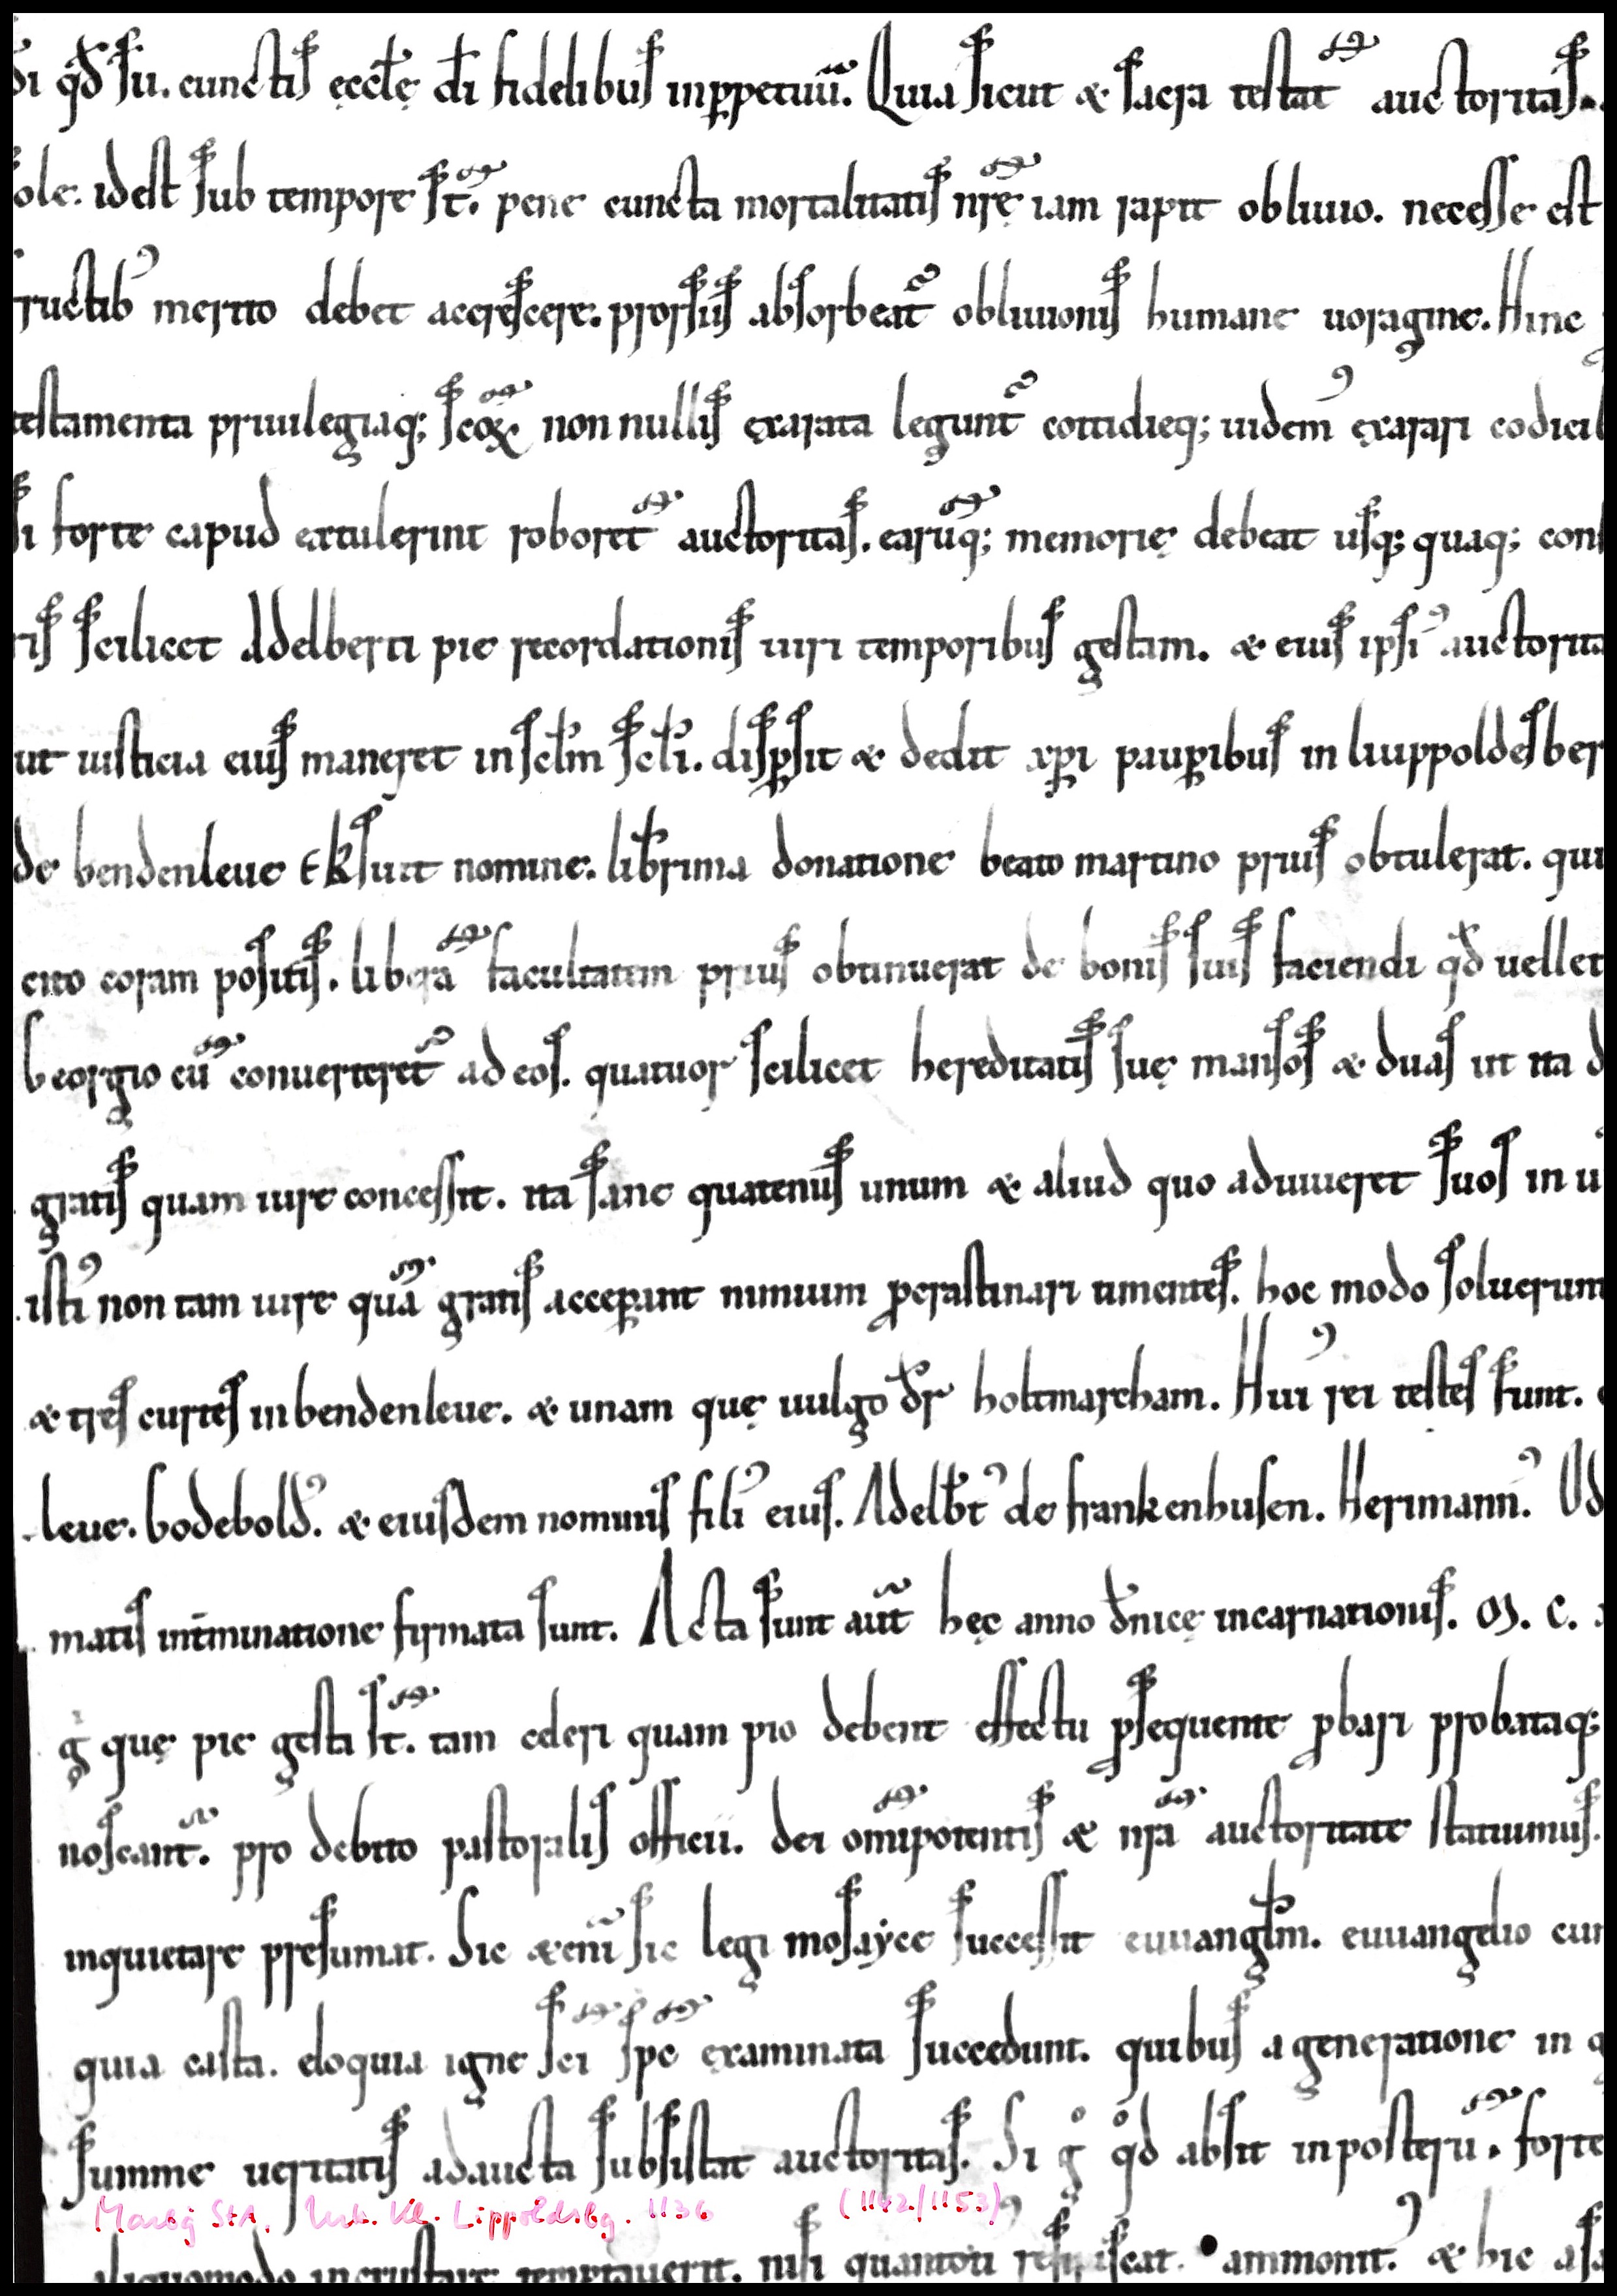 di qđ su. cunctis ęccłę di fidelibus inppetuū. Quia sicut & sacra testat̄ auctoritas.
sole. idest sub tempore st̄. pene cuncta mortalitatis nr̄ę iam rapit obliuio. necesse est
fructib᾽ merito debet accrescere. prorsus absorbeat̄ obliuionis humane uoragine. Hinc
testamenta priuilegiaq; scōꝝ non nullis exarata legunt̄ cottidieq; uidem᾽ exarari codicil
si forte capud extulerint roboret̄ auctoritas. earūq; memorię debeat usq; quaq; cons
ris scilicet Adelberti pie recordationis uiri temporibus gestam. & eius ipsi᾽ auctorita
ut iusticia eius maneret in scłm scłi. dispsit & dedit xp̄i paupibus in liuppoldesber
de bendenleue E k suit nomine. lib̄rima donatione beato martino prius obtulerat. qui
cito coram positis. liberā facultatem prius obtinuerat de bonis suis faciendi qđ uellet
Georgio cū conuerteret̄ ad eos. quatuor scilicet hereditatis suę mansos & duas ut ita d
gratis quam iure concessit. ita sane quatenus unum & aliud quo aduiueret suos in u
isti᾽ non tam iure quā gratis acceperant nimium ꝓcrastinari timentes. hoc modo soluerunt
& tres curtes in bendenleue. & unam quę uulgo dr̄ holtmarcham. Hui᾽ rei testes sunt.
leue. bodebold᾽. & eiusdem nominis fili᾽ eius. Adelb̄t᾽ de frankenhusen. Herimann᾽. Ud
matis intīminatione firmata sunt. Acta sunt aūt hęc anno dn̄icę incarnationis. M. C.
g̊ quę pie gesta st̄. tam celeri quam pio debent effectu ꝓsequente ꝓbari probataq;
noscant̄. pro debito pastoralis officii. dei om̄ipotentis & nr̄a auctoritate statuimus.
inquietare presumat. Sic &eni̅ sic legi mosayce successit euuangłm. euuangelio cur
quia casta. eloquia igne sc̄i sp̄c examinata succedunt. quibus a generatione in g
summe ueritatis adaucta subsistat auctoritas. Si g̊ qđ absit in posterū. forte
Marbg StA. Urk. Kl. Lippoldsbg. 1136 (1142/1153)
aliquomodo incrustare temptauerit. nisi quantoti᾽ resipiscat. ammonit᾽. & hic